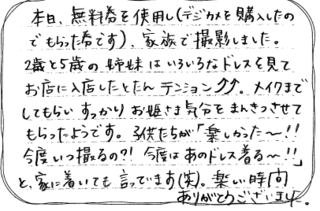 本日、無料券を使用し(デジカメを購入したの
でもらった券です)、家族で撮影しました。
2歳と5歳の姉妹はいろいろなドレスを見て
お店に入店したとたん テンション⤴⤴。メイクまで
してもらい すっかり お姫さま気分をまんきつさせて
もらったようです。子供たちが「楽しかった〜!!
今度いつ撮るの?! 今度はあのドレス着る〜!!」
と、家に着いても 言っています(笑)。楽しい時間
ありがとうございました。